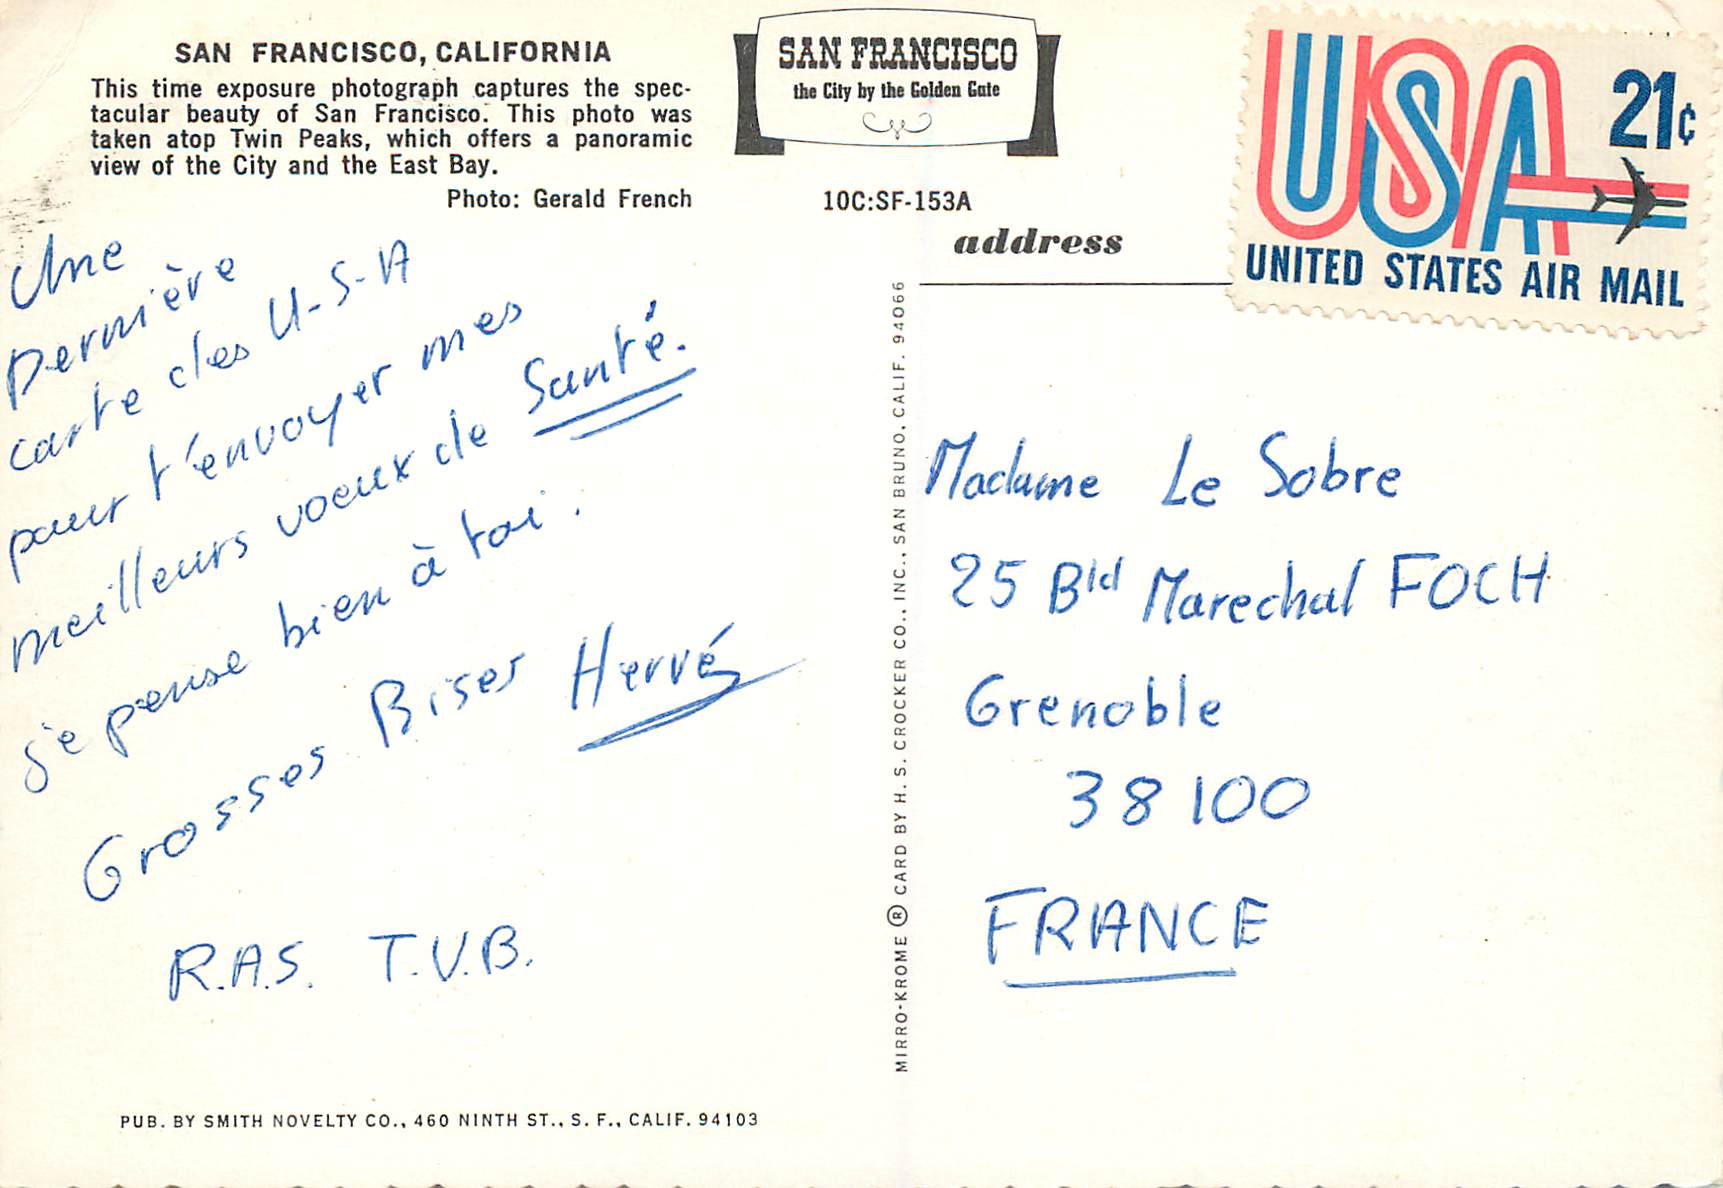 SAN FRANCISCO, CALIFORNIA
This time exposure photograph captures the spec-
tacular beauty of San Francisco. This photo was
taken atop Twin Peaks, which offers a panoramic
view of the City and the East Bay.
Photo: Gerald French
SAN FRANCISCO
the City by the Golden Gate
10C:SF-153A
address
USA
21¢
UNITED STATES AIR MAIL
Une
Dernière
carte des U-S-A
pour t'envoyer mes
meilleurs voeux de Santé.
Je pense bien à toi.
Grosses Bises Hervé
R.A.S. T.V.B.
MIRRO-KROME ® CARD BY H. S. CROCKER CO., INC., SAN BRUNO, CALIF. 94066
Madame Le Sobre
25 Bld Marechal FOCH
Grenoble
38100
FRANCE
PUB. BY SMITH NOVELTY CO., 460 NINTH ST., S. F., CALIF. 94103